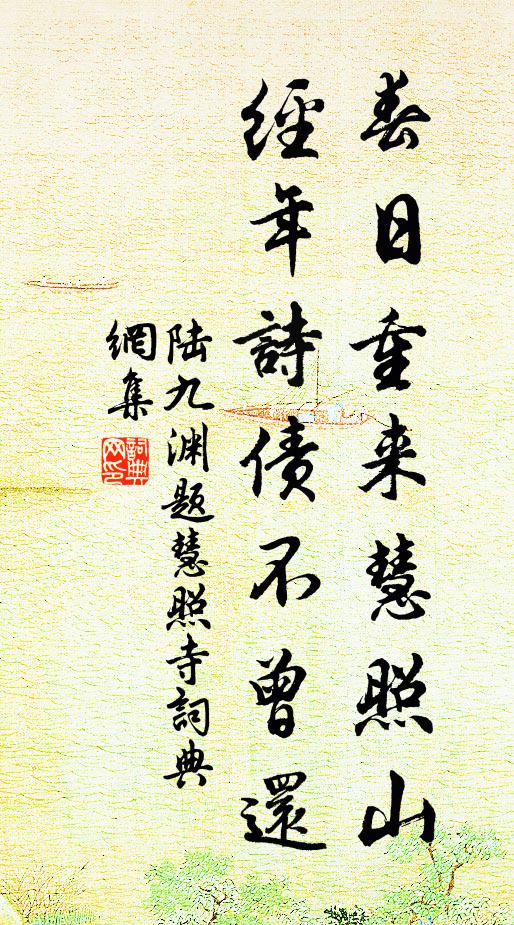 春日重来慧照山
經年詩債不曾還
陆九渊题慧照寺詞典
網集
詞典网印